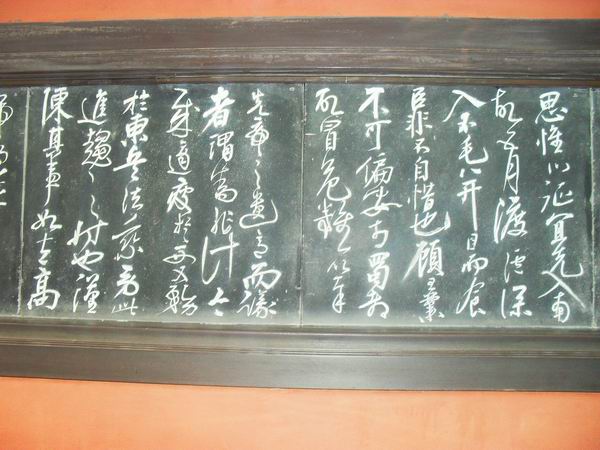 思惟北征宜先入南
故五月渡瀘深
入不毛并日而食
臣非不自惜也顧王業
不可偏安於蜀都
故冒危難以奉
先帝之遺意而議
者謂為非計今
賊適疲於西又務
於東兵法乘勞此
進趨之時也謹
陳其事如左高